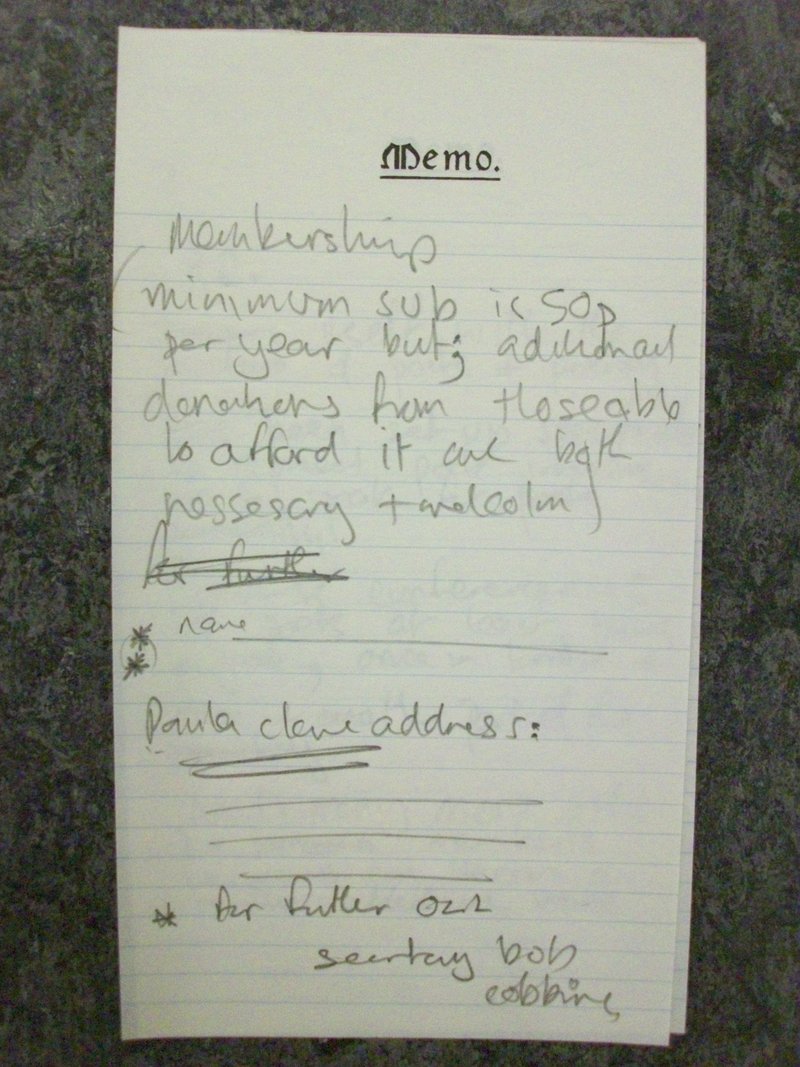 Memo.
Membership
minimum sub is 50p
per year but; additional
donations from those able
to afford it are both
nessesary + welcolm
for further
name
Paula Clare address:
* for further
secretary bob
cobbing